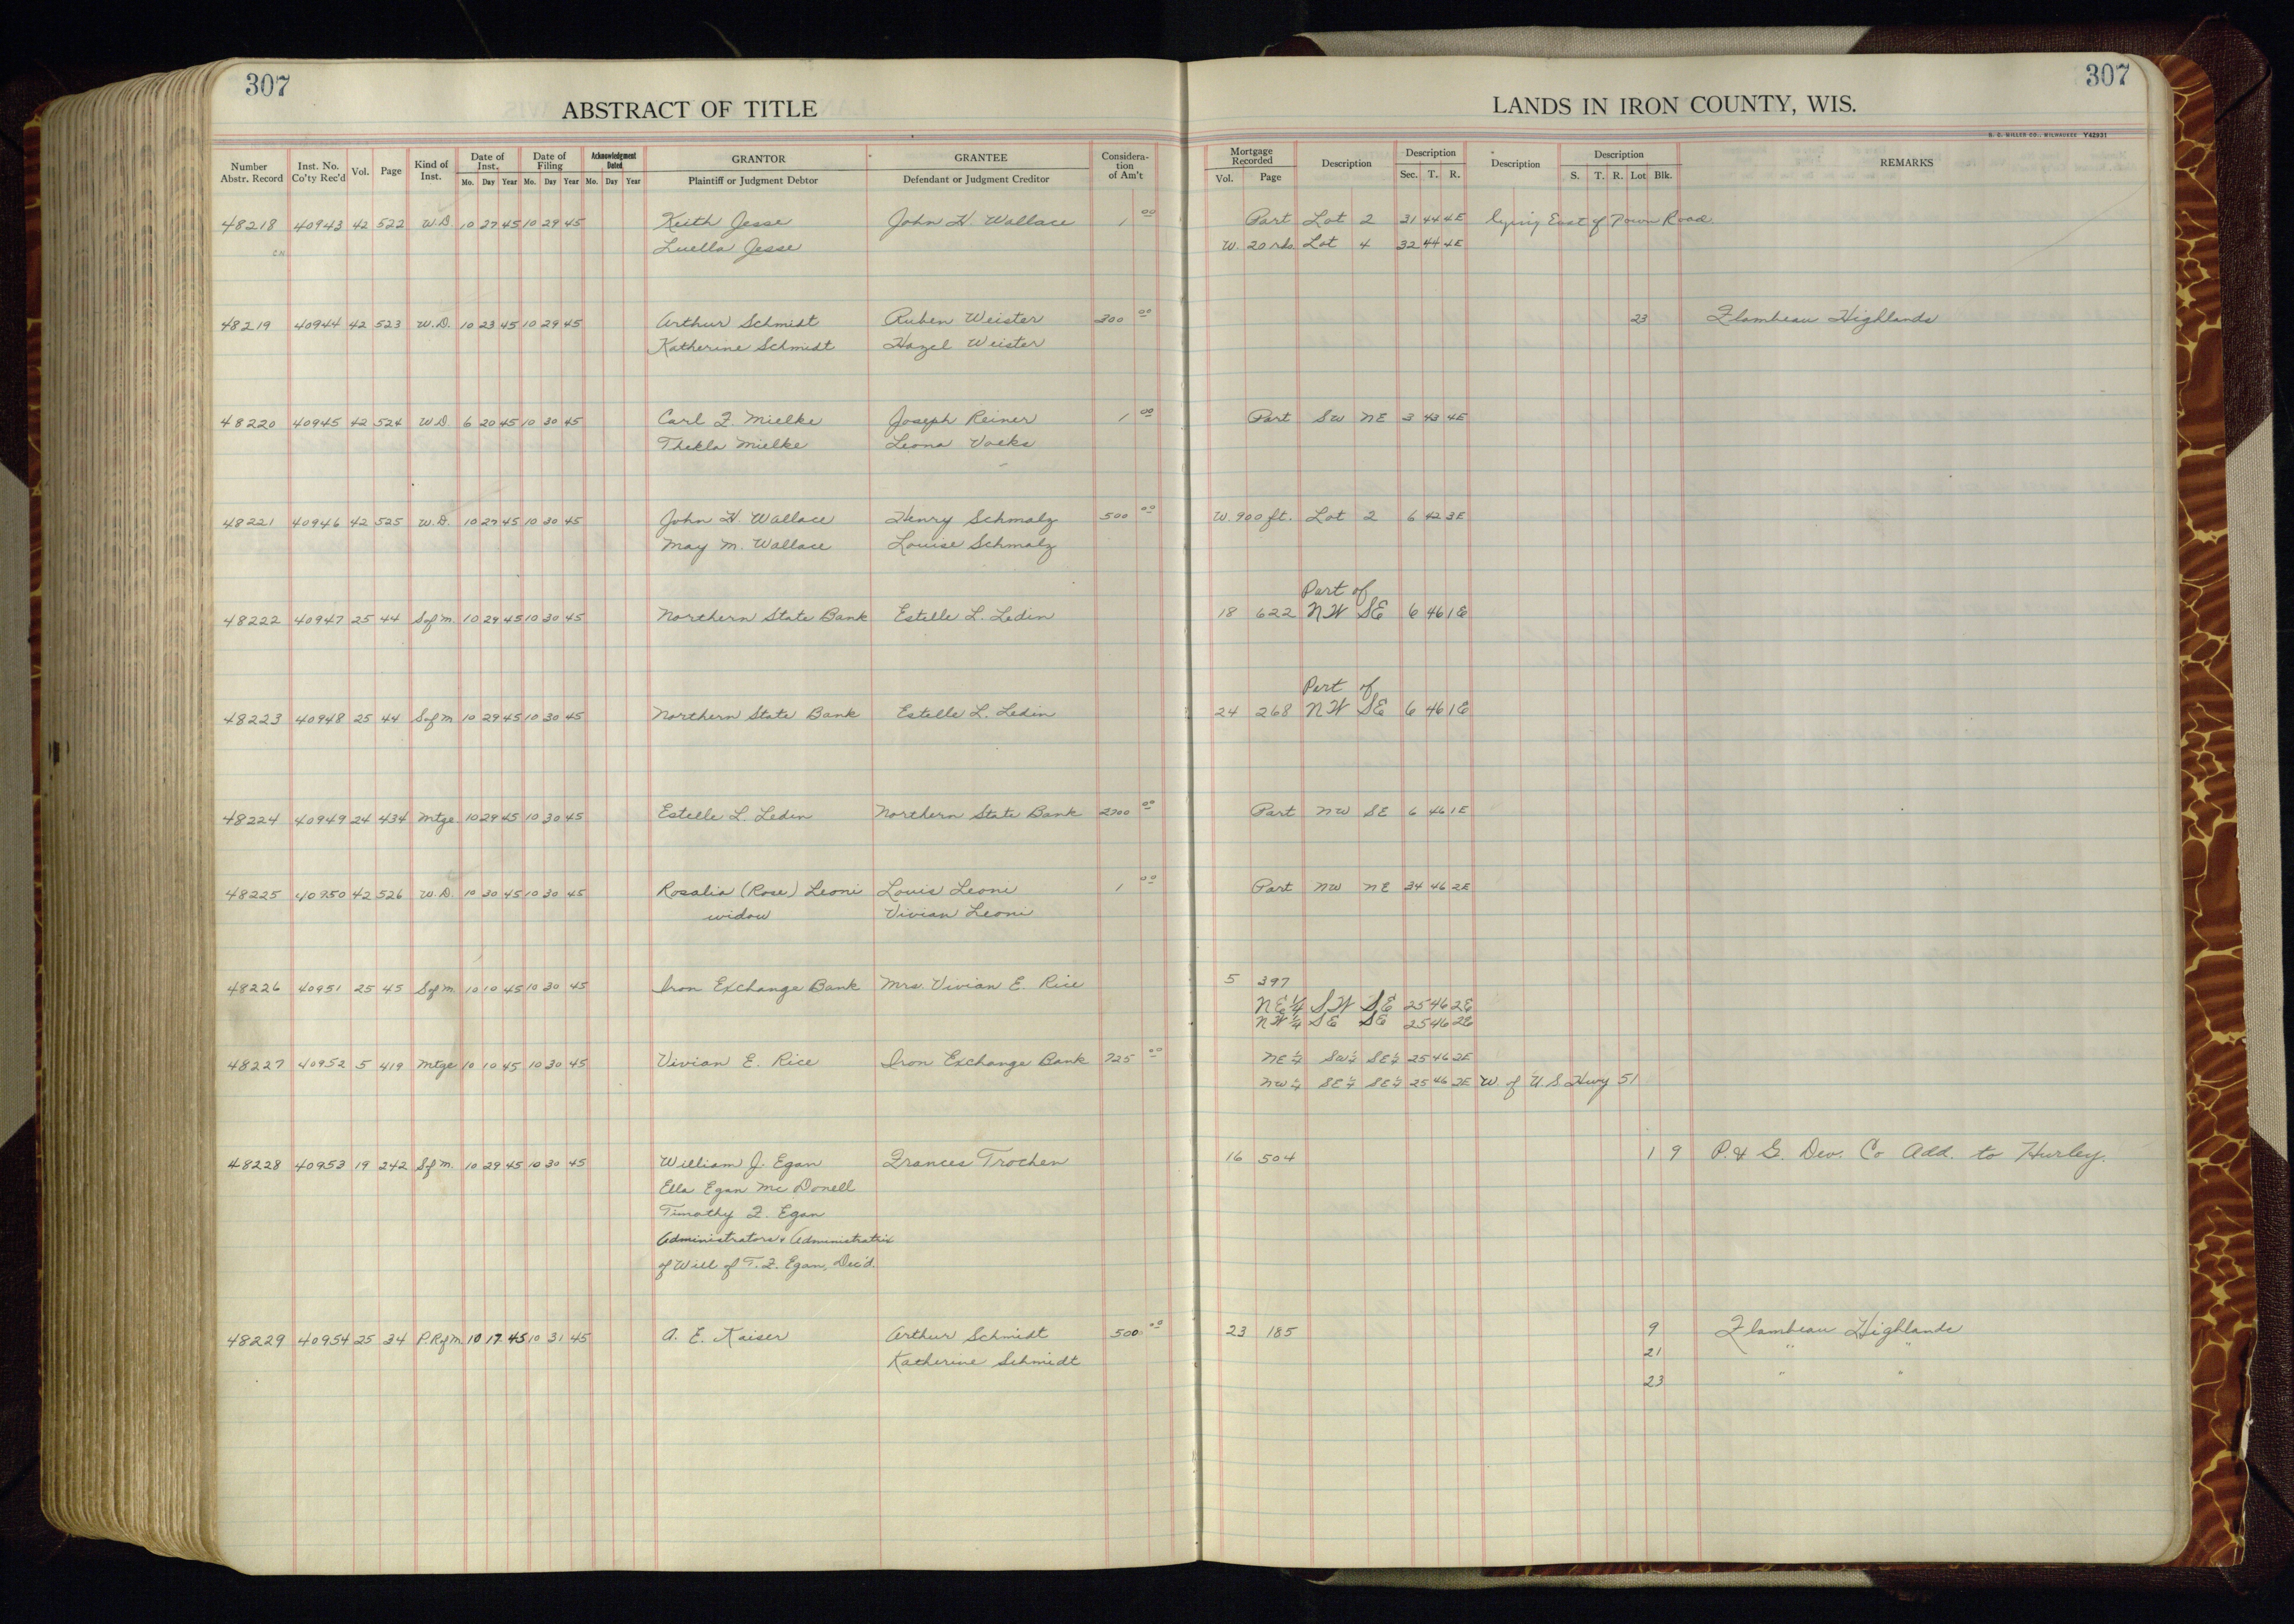 307
307
ABSTRACT OF TITLE
LANDS IN IRON COUNTY, WIS.
H. C. MILLER CO., MILWAUKEE Y42931
Number Abstr. Record | Inst. No. Co'ty Rec'd | Vol. | Page | Kind of Inst. | Date of Inst. Mo. Day Year | Date of Filing Mo. Day Year | Acknowledgment Dated Mo. Day Year | GRANTOR Plaintiff or Judgment Debtor | GRANTEE Defendant or Judgment Creditor | Consideration of Am't | Mortgage Recorded Vol. Page | Description | Description Sec. T. R. | Description | Description S. T. R. Lot Blk. | REMARKS
48218 40943 42 522 W.D. 10 27 45 10 29 45 Keith Jesse John H. Wallace 1 00 Part Lot 2 31 44 4E lying East of Town Road
CH Luella Jesse W. 20 rds. Lot 4 32 44 4E
48219 40944 42 523 W.D. 10 23 45 10 29 45 Arthur Schmidt Ruben Weister 300 00 23 Flambeau Highlands
Katherine Schmidt Hazel Weister
48220 40945 42 524 W.D. 6 20 45 10 30 45 Carl F. Mielke Joseph Reiner 1 00 Part SW NE 3 43 4E
Thekla Mielke Leona Voeks
48221 40946 42 525 W.D. 10 27 45 10 30 45 John H. Wallace Henry Schmalz 500 00 W. 900 ft. Lot 2 6 42 3E
May M. Wallace Louise Schmalz
Part of
48222 40947 25 44 S of M. 10 29 45 10 30 45 Northern State Bank Estelle L. Ledin 18 622 NW SE 6 46 1E
Part of
48223 40948 25 44 S of M 10 29 45 10 30 45 Northern State Bank Estelle L. Ledin 24 268 NW SE 6 46 1E
48224 40949 24 434 Mtge 10 29 45 10 30 45 Estelle L. Ledin Northern State Bank 2700 00 Part NW SE 6 46 1E
48225 40950 42 526 W.D. 10 30 45 10 30 45 Rosalia (Rose) Leoni Louis Leoni 1 00 Part NW NE 34 46 2E
widow Vivian Leoni
48226 40951 25 45 S of M. 10 10 45 10 30 45 Iron Exchange Bank Mrs. Vivian E. Rice 5 397
NE¼ SW SE 25 46 2E
NW¼ SE SE 25 46 2E
48227 40952 5 419 Mtge 10 10 45 10 30 45 Vivian E. Rice Iron Exchange Bank 725 00 NE¼ SW¼ SE¼ 25 46 2E
NW¼ SE¼ SE¼ 25 46 2E W. of U.S. Hwy 51
48228 40953 19 242 S of M. 10 29 45 10 30 45 William J. Egan Frances Trochen 16 504 1 9 P. & G. Dev. Co Add. to Hurley.
Ella Egan McDonell
Timothy F. Egan
Administrators & Administratrix
of Will of T. F. Egan, Dec'd.
48229 40954 25 34 P.R of M 10 17 45 10 31 45 A. E. Kaiser Arthur Schmidt 500 00 23 185 9 Flambeau Highlands
Katherine Schmidt 21 " "
23 " "